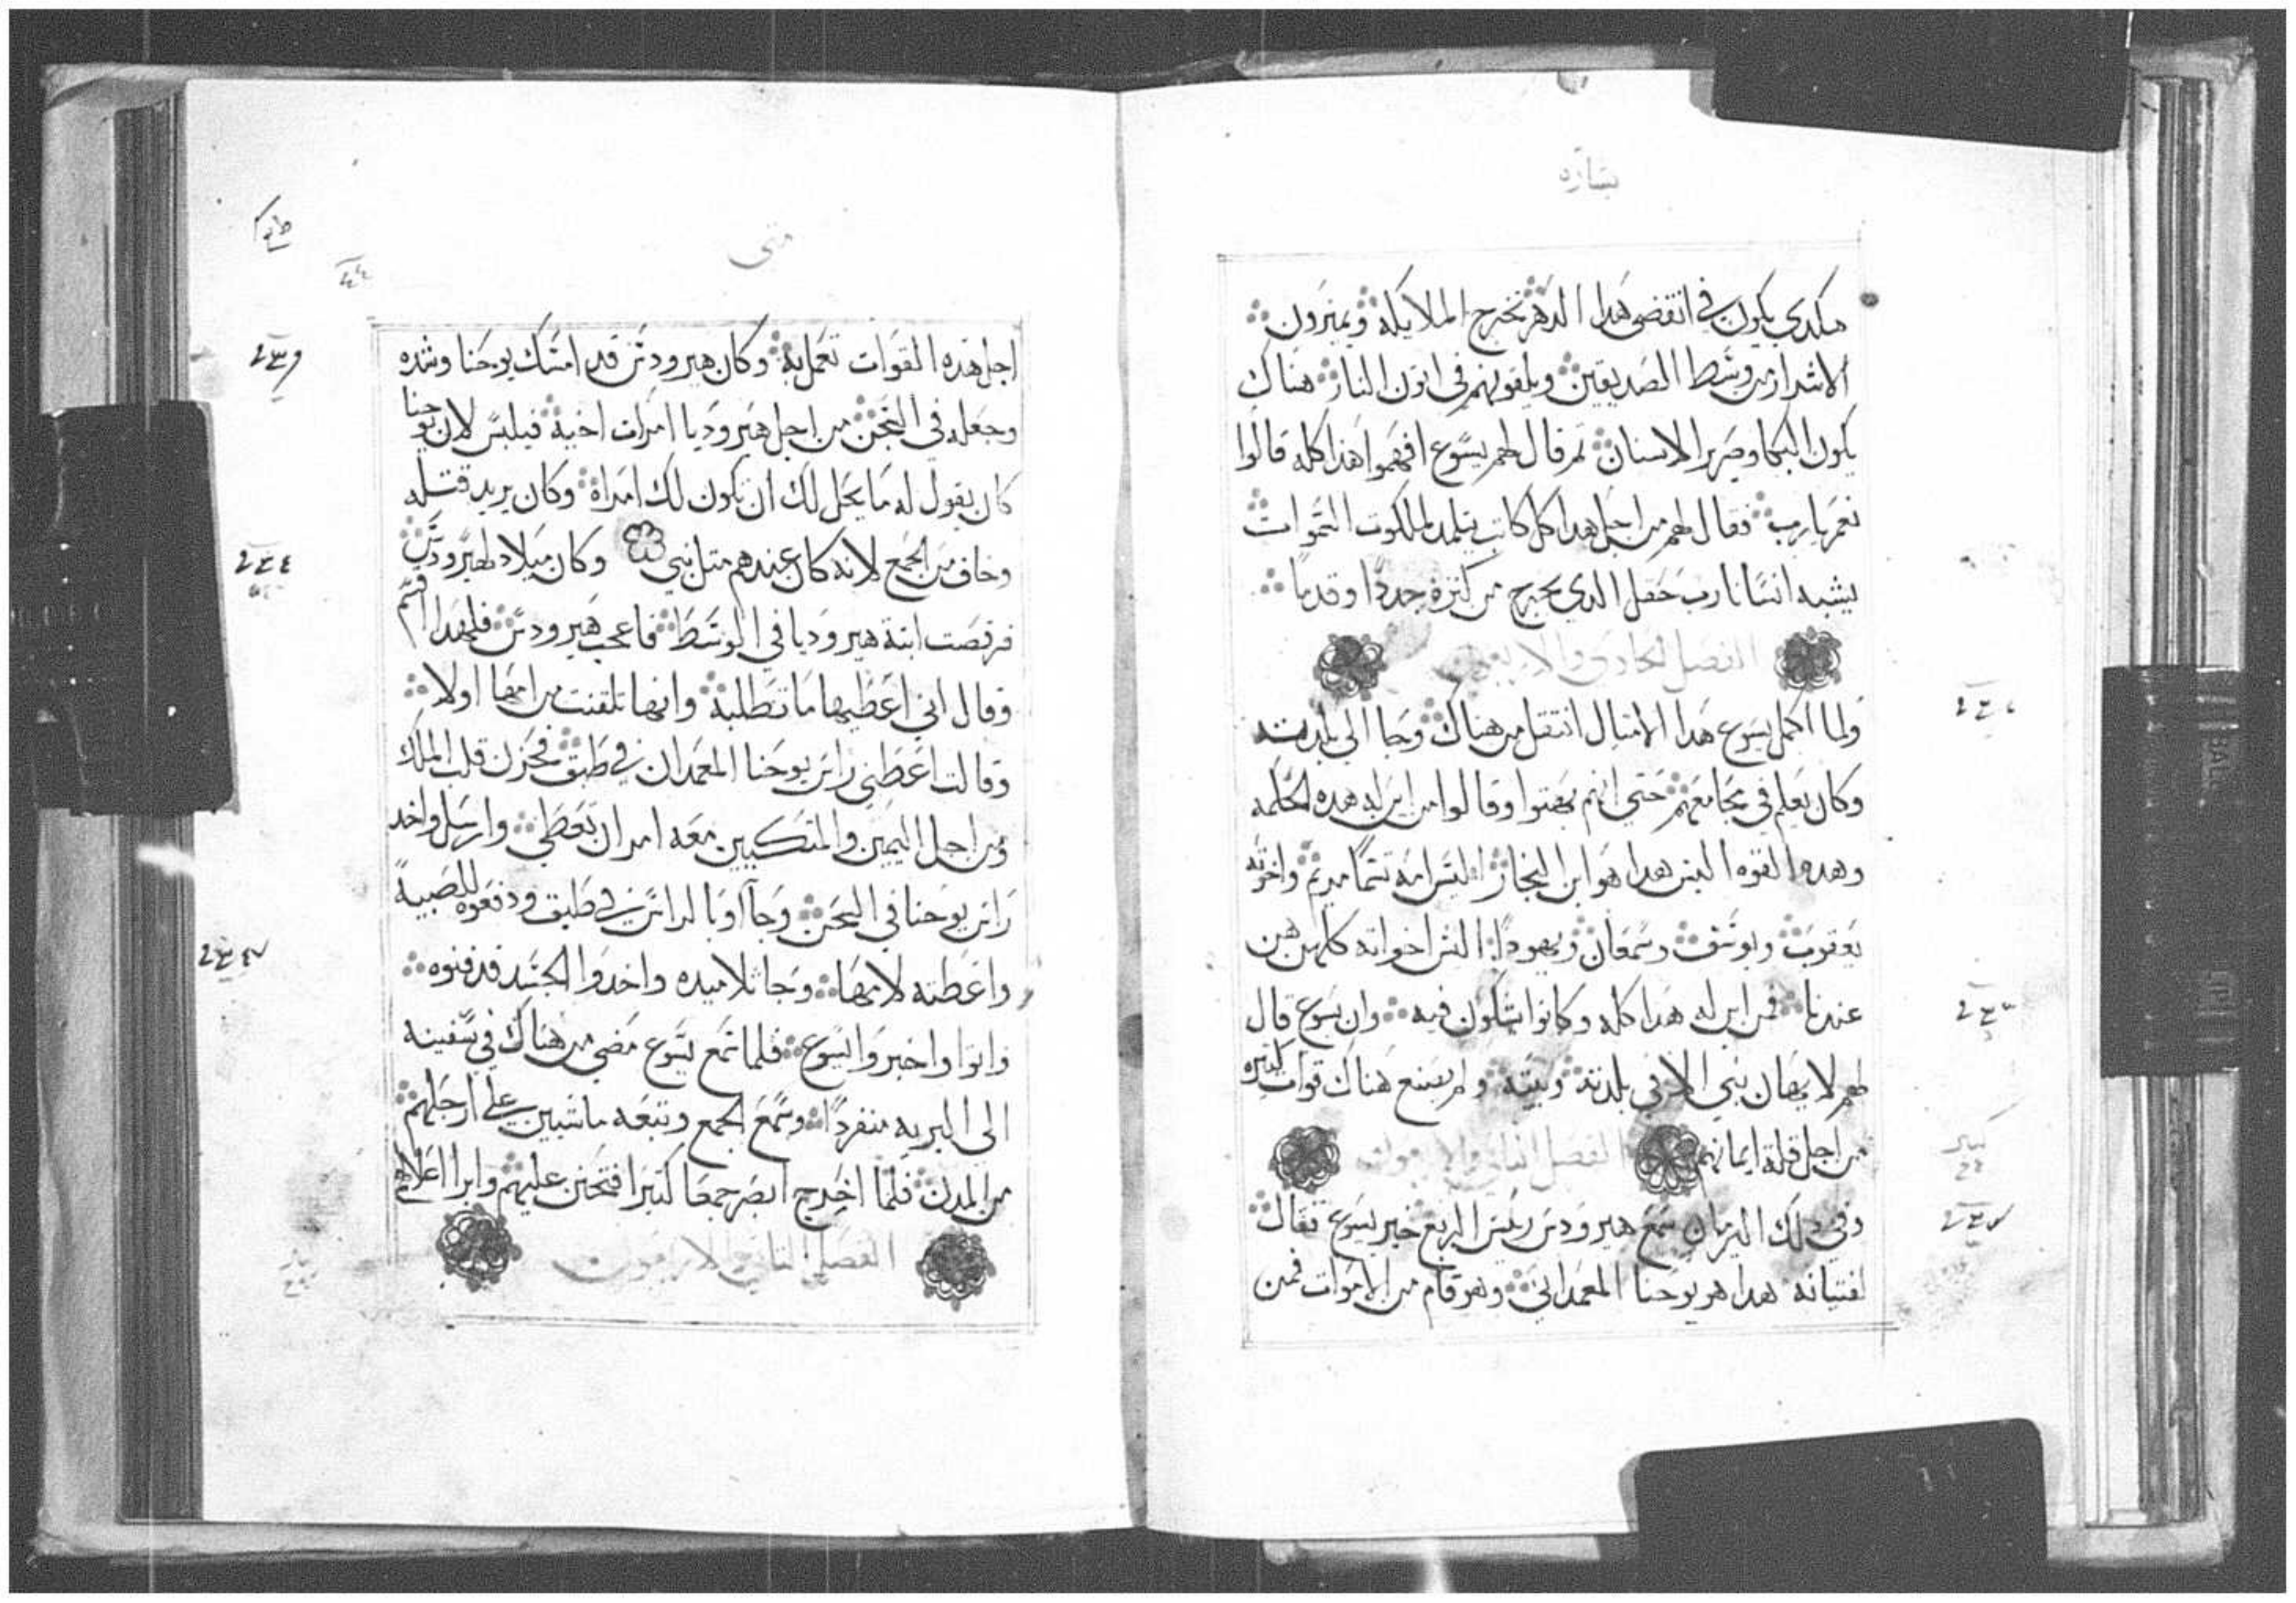 بشاره
هكدي يكون في انقضى هدا الدهر تخرج الملايكه ويميزون
الاشرار من وسط الصديقين ويلقونهم في اتون النار هناك
يكون البكا وصرير الاسنان ثم قال لهم يسوع افهموا هذا كله قالوا
نعم يا رب فقال لهم من اجل هدا كل كاتب يتلمد لملكوت السموات
يشبه انسانا رب حقل الدي يخرج من كنزه جددا وقدما
الفصل الحادي والاربعون
ولما اكمل يسوع هدا الامثال انتقل من هناك وجا الى بلدته
وكان يعلم في مجامعهم حتى انهم بهتوا وقالوا من اين له هده الحكمه
وهده القوه اليس هدا هو ابن النجار اليس امه تسما مريم واخوته
يعقوب ويوسف وسمعان ويهودا اليس اخواته كلهن هن
عندنا فمن اين له هدا كله وكانوا يشكون فيه وان يسوع قال
لهم لا يهان نبي الا في بلدته وبيته ولم يصنع هناك قوات كثيره
من اجل قلة ايمانهم الفصل الثاني والاربعون
وفي دلك الزمان سمع هيرودس رييس الربع خبر يسوع فقال
لفتيانه هدا هو يوحنا المعمداني وهو قام من الاموات فمن
متى
٤٤
اجل هده القوات تعمل به وكان هيرودس قد امسك يوحنا وشده
وجعله في السجن من اجل هيروديا امرات اخيه فيلبس لان يوحنا
كان يقول له ما يحل لك ان تكون لك امراه وكان يريد قتله
وخاف من الجمع لانه كان عندهم مثل نبي وكان ميلاد لهيرودس
فرقصت ابنة هيروديا في الوسط فاعجب هيرودس فلهدا اقسم
وقال اني اعطيها ما تطلبه وانها تلقنت من امها اولا
وقالت اعطني راس يوحنا المعمدان في طبق فحزن قلب الملك
ومن اجل اليمين والمتكيين معه امر ان تعطي وارسل واخد
راس يوحنا في السجن وجاوا بالراس في طبق ودفعوه للصبية
واعطته لامها وجا تلاميده واخدوا الجسد فدفنوه
واتوا واخبروا يسوع فلما سمع يسوع مضى من هناك في سفينه
الى البريه منفردا وسمع الجمع وتبعه ماشيين على ارجلهم
من المدن فلما اخرج ابصر جمعا كثيرا فتحنن عليهم وابرا اعلاهم
الفصل الثالث والاربعون